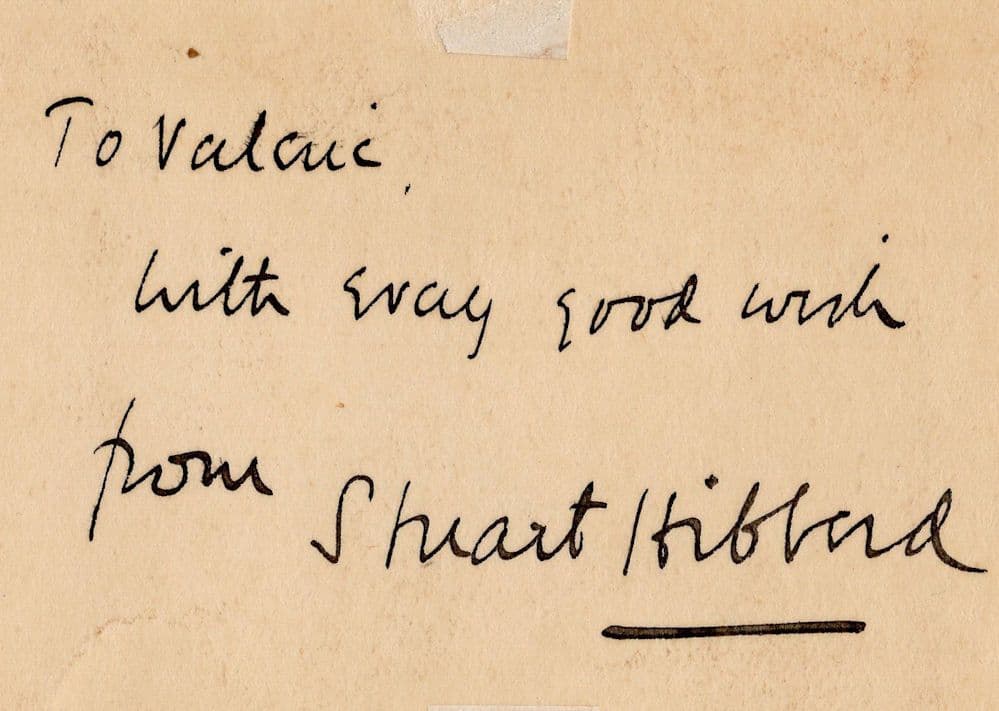 To Valerie,
with every good wish
from
Stuart Hibberd